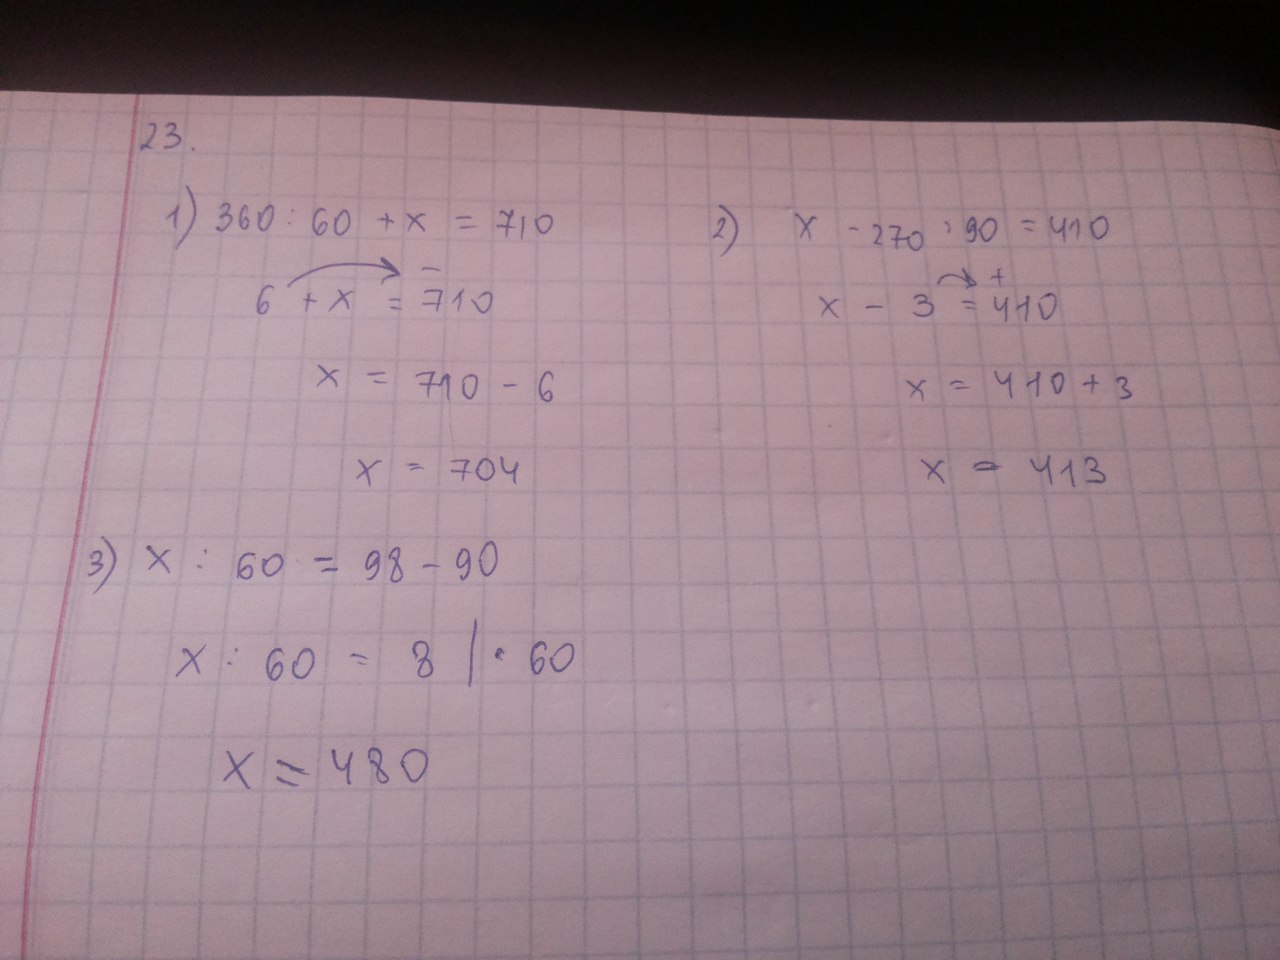 23.
1) 360 : 60 + x = 710
6 + x = 710
–
x = 710 - 6
x = 704
2) x - 270 : 90 = 410
+
x - 3 = 410
x = 410 + 3
x = 413
3) x : 60 = 98 - 90
x : 60 = 8 | · 60
x = 480